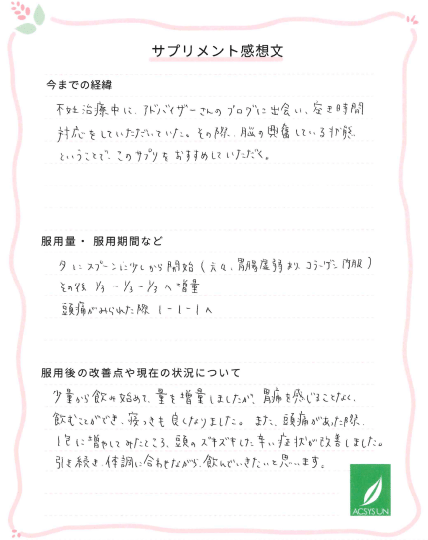 サプリメント感想文
今までの経緯
不妊治療中に、アドバイザーさんのブログに出会い、空き時間
対応をしていただいていた。その際、脳の興奮している状態
ということで、このサプリをおすすめしていただく。
服用量・ 服用期間など
夕にスプーンに少しから開始(元々、胃腸虚弱あり、コラーゲン内服)
その後 1/3 - 1/3 - 1/3 へ増量
頭痛がみられた際 1 - 1 - 1 へ
服用後の改善点や現在の状況について
少量から飲み始めて、量を増量しましたが、胃痛を感じることなく、
飲むことができ、寝つきも良くなりました。また、頭痛があった際、
1包に増やしてみたところ、頭のズキズキした辛い症状が改善しました。
引き続き、体調に合わせながら、飲んでいきたいと思います。
ACSYS UN